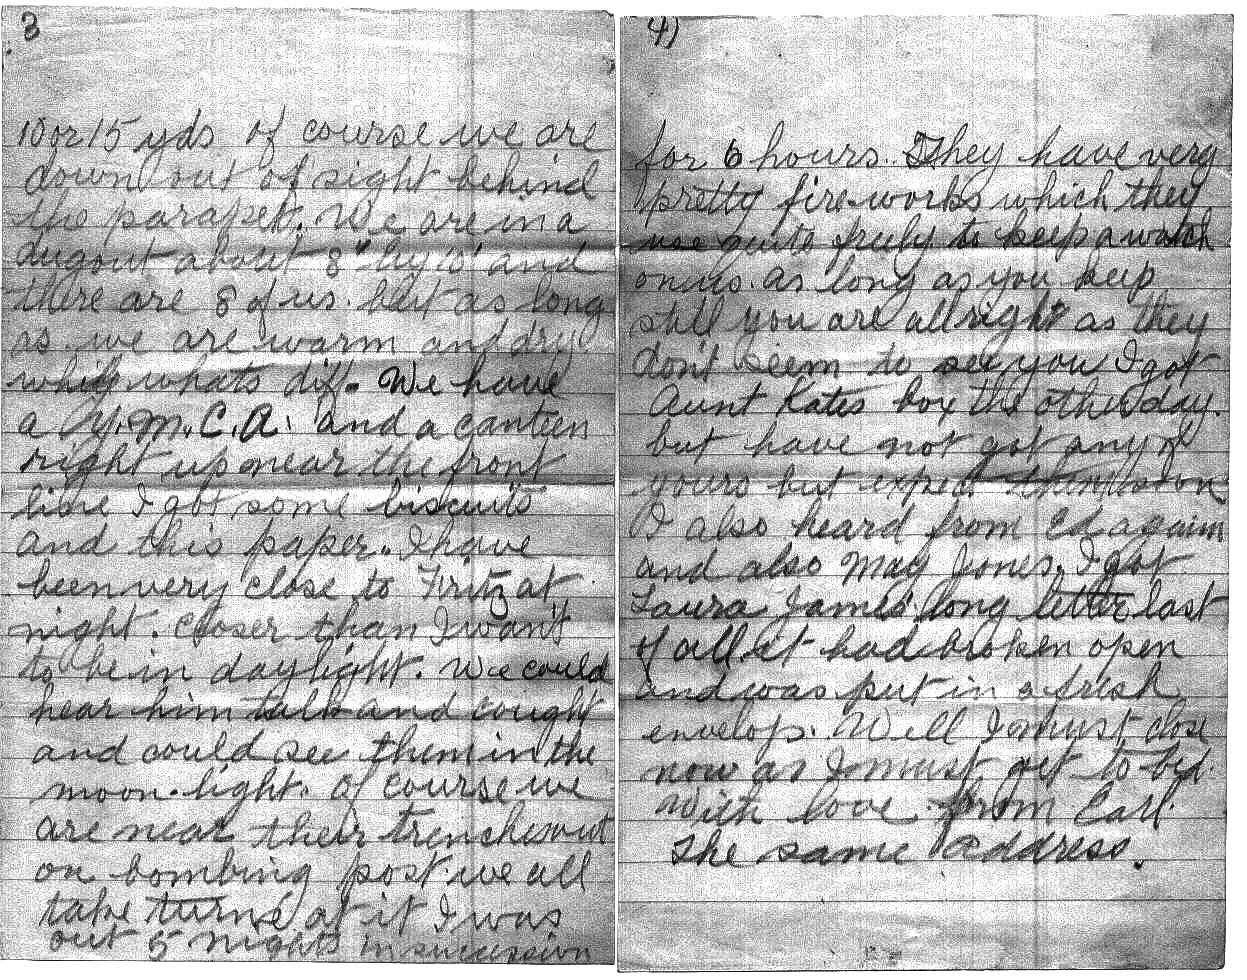 3
10 or 15 yds of course we are
down out of sight behind
the parapet. We are in a
dugout about 8" by 10' and
there are 8 of us. but as long
as we are warm and dry
why whats diff. We have
a Y.M.C.A. and a canteen
right up near the front
line I got some biscuits
and this paper. I have
been very close to Fritz at
night. closer than I want
to be in daylight. We could
hear him talk and cough
and could see them in the
moon-light. Of course we
are near their trenches out
on bombing post we all
take turns at it I was
out 5 nights in succession
4)
for 6 hours. They have very
pretty fire-works which they
use quite freely to keep a watch
on us. as long as you keep
still you are all right as they
don't seem to see you I got
Aunt Kates box the other day.
but have not got any of
yours but expect them soon
I also heard from Ed again
and also Mag Jones. I got
Laura James' long letter last
of all it had broken open
and was put in a fresh
envelop. Well I must close
now as I must get to bed.
With love from Earl.
The same address.